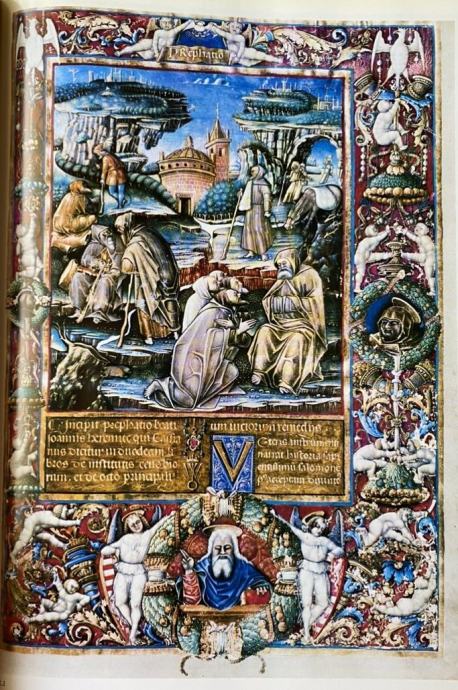 Prephatio
Incipit prephatio beati
ioannis heremite qui Cassia
nus dicitur in duodecim li
bros de institutis cenobio
rum, et de octo principaliu
um uictorum remediis
Veteris instrumenti
narrat historia sapi
entissimum salomone